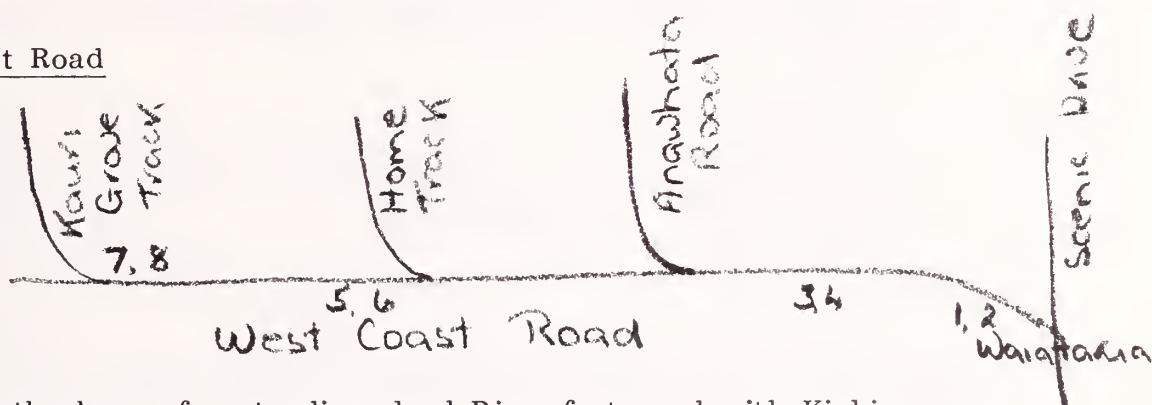 t Road
Kauri
Grove
Track
7, 8
Home
Track
5, 6
Anawhata
Road
3,4
Scenic Drive
1, 2
West Coast Road
Waiatarua